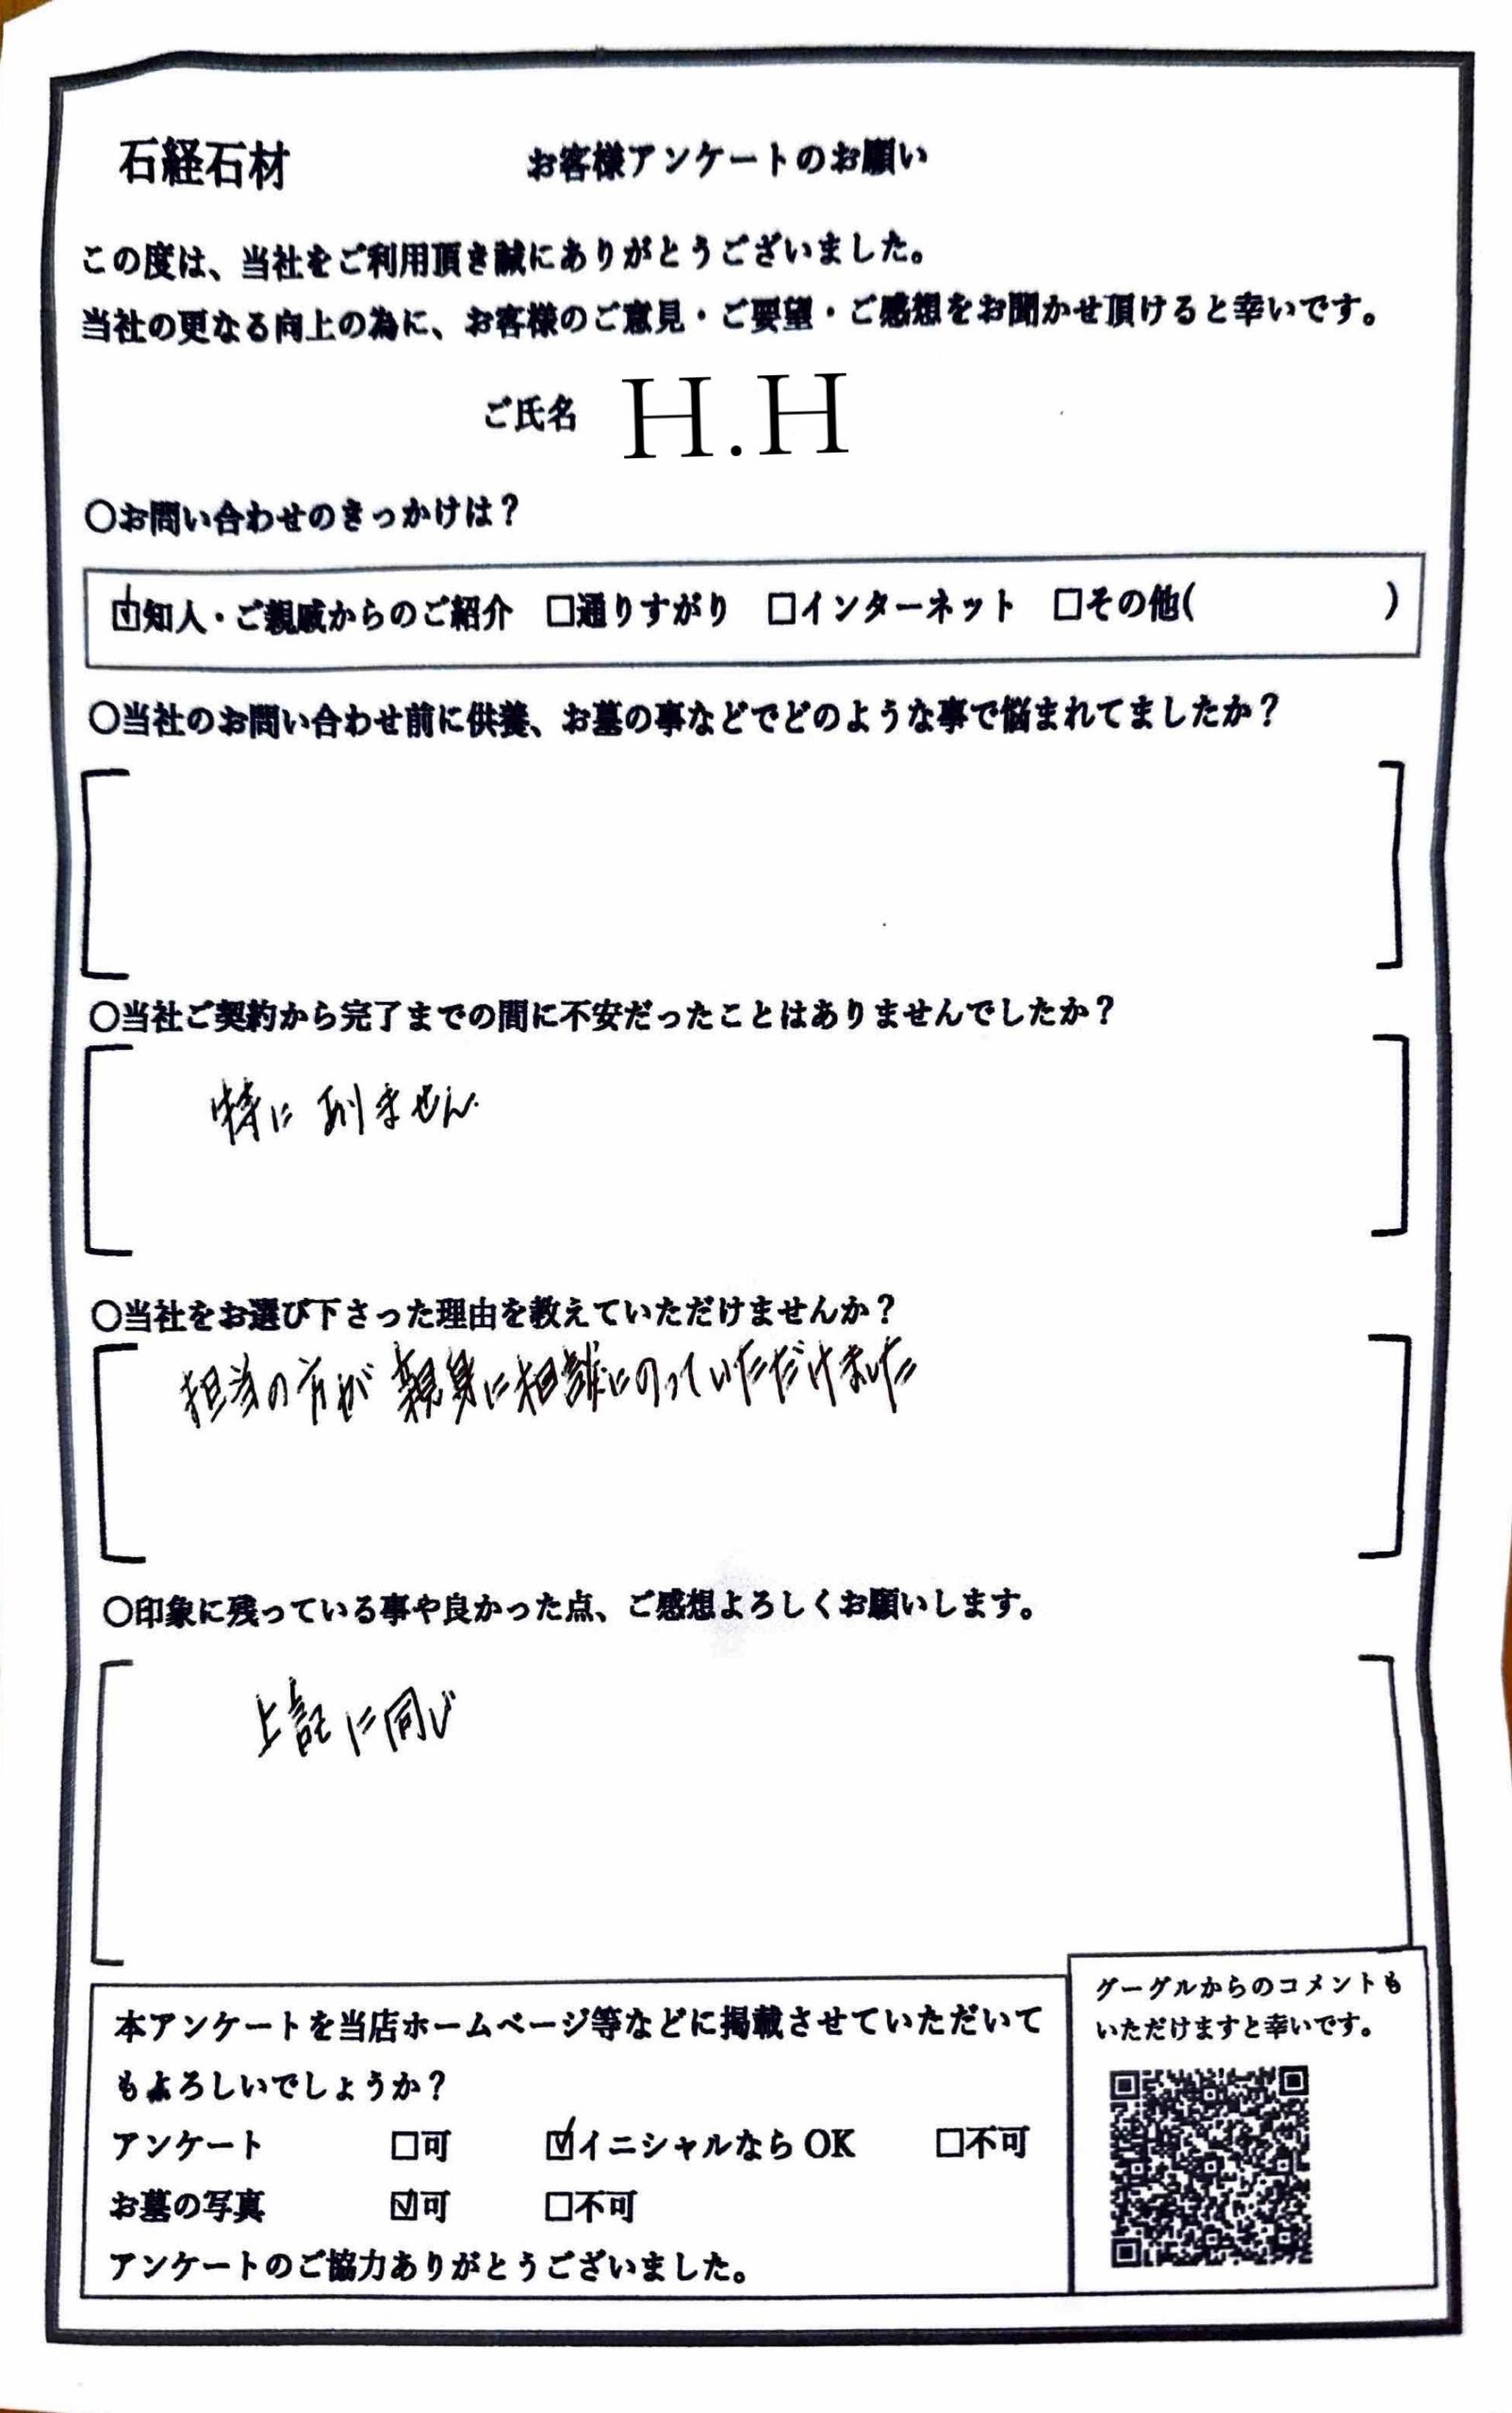 石経石材 お客様アンケートのお願い
この度は、当社をご利用頂き誠にありがとうございました。
当社の更なる向上の為に、お客様のご意見・ご要望・ご感想をお聞かせ頂けると幸いです。
ご氏名 H.H
〇お問い合わせのきっかけは？
☑知人・ご親戚からのご紹介 □通りすがり □インターネット □その他( )
〇当社のお問い合わせ前に供養、お墓の事などでどのような事で悩まれてましたか？
〇当社ご契約から完了までの間に不安だったことはありませんでしたか？
特に ありません
〇当社をお選び下さった理由を教えていただけませんか？
担当の方が親身に相談にのっていただけました
〇印象に残っている事や良かった点、ご感想よろしくお願いします。
上記に同じ
本アンケートを当店ホームページ等などに掲載させていただいて
もよろしいでしょうか？
アンケート □可 ☑イニシャルなら OK □不可
お墓の写真 ☑可 □不可
アンケートのご協力ありがとうございました。
グーグルからのコメントも
いただけますと幸いです。